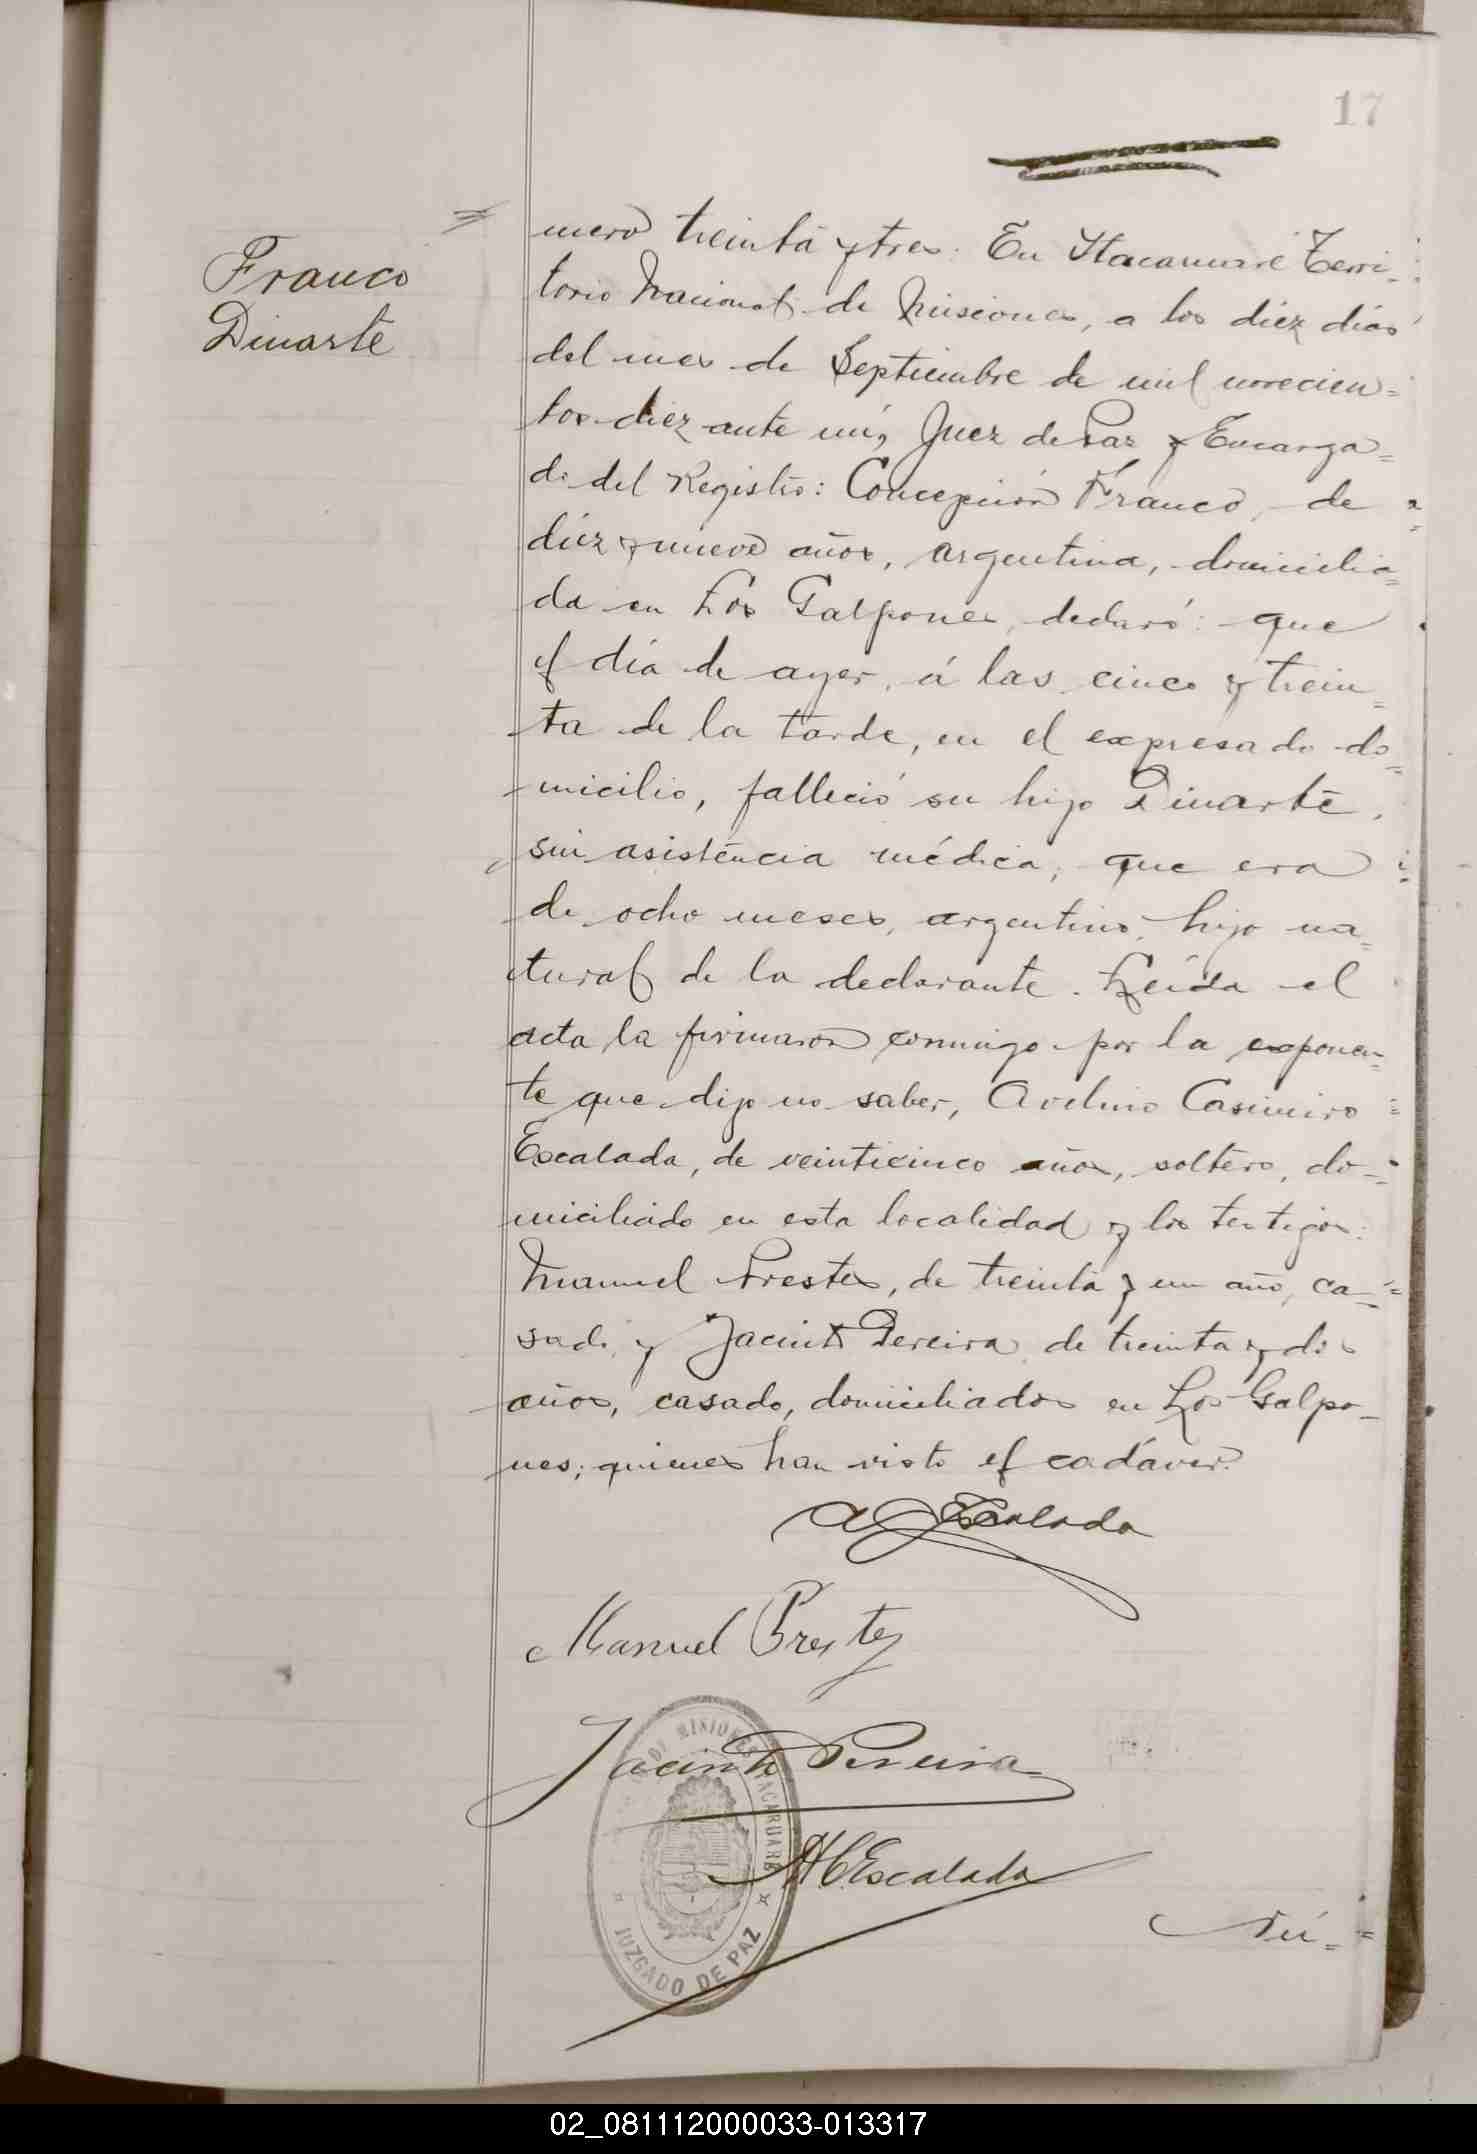 17
Franco
Dinarte
mero treinta y tres: En Itacaruaré Terri-
torio Nacional de Misiones, a los diez dias
del mes de Septiembre de mil novecien-
tos diez ante mí, Juez de Paz y Encarga-
do del Registro: Concepción Franco, de
diez y nueve años, argentina, domicilia-
da en Los Galpones, declaró: que
el día de ayer, á las cinco y trein-
ta de la tarde, en el expresado do-
micilio, falleció su hijo Dinarte,
sin asistencia médica, que era
de ocho meses, argentino, hijo na-
tural de la declarante. Leída el
acta la firmaron conmigo por la exponen-
te que dijo no saber, Avelino Casimiro
Escalada, de veinticinco años, soltero, do-
miciliado en esta localidad y los testigos:
Manuel Prestes, de treinta y un año, ca-
sado, y Jacinto Pereira, de treinta y dos
años, casado, domiciliados en Los Galpo-
nes; quienes han visto el cadáver.
A C Escalada
Manuel Prestes
Jacinto Pereira
MISIONES ITACARUARE
JUZGADO DE PAZ
A C Escalada
Nú-
02_081112000033-013317